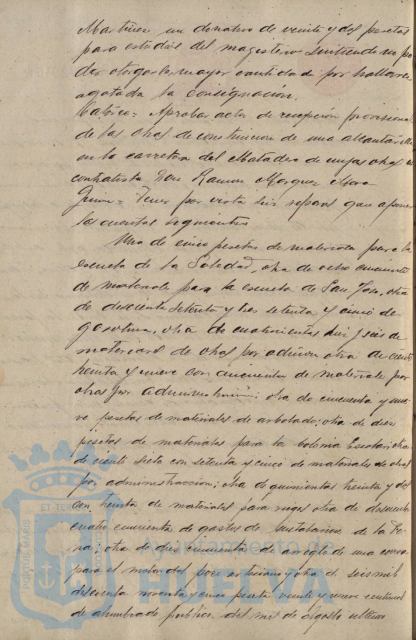 Martinez un donativo de veinte y dos pesetas
para estudios del magisterio sintiendo no po
der otorgarle mayor cantidad por hallarse
agotada la consignación.
Catorce = Aprobar acta de recepción provisional
de las obras de construccion de una alcantarilla
en la carretera del Matadero de cuyas obras es
contratista Don Ramon Marquez Mora
Quince = Tener por vista sin reparos que oponer
las cuentas siguientes
Una de cinco pesetas de materiales para la
escuela de la Soledad, otra de ocho cincuenta
de materiale para la escuela de San Jose, otra
de doscientas setenta y tres setenta y cinco de
gasolina, otra de cuatrocientas diez y seis de
materiales de obras por admon otra de ciento
treinta y nueve con cincuenta de materiale por
obras por administracion; otra de cincuenta y nue
ve pesetas de materiales de arbolado; otra de diez
pesetas de materiales para la colonia Escolar; otra
de ciento siete con setenta y cinco de materiales de obras
por administracion; otra de quinientas treinta y dos
con treinta de materiales para otra de doscientas
cuatro cincuenta de gastos de instalacion de la
otra de diez cincuenta de arreglo de una
para el motor del pozo artesiano y otra de seis mil
doscientas noventa y cinco pesetas veinte y nueve centimos
de alumbrado publico, del mes de Agosto ultimo
Ayuntamiento de
HUELVA